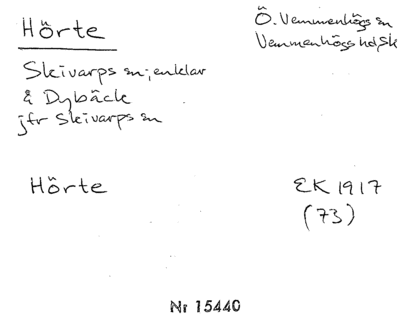 Hörte
Ö. Vemmenhögs sn
Vemmenhögs hd, Sk
Skivarps sn:, enklav
& Dybäck
jfr Skivarps sn
Hörte
EK 1917
(73)
Nr 15440